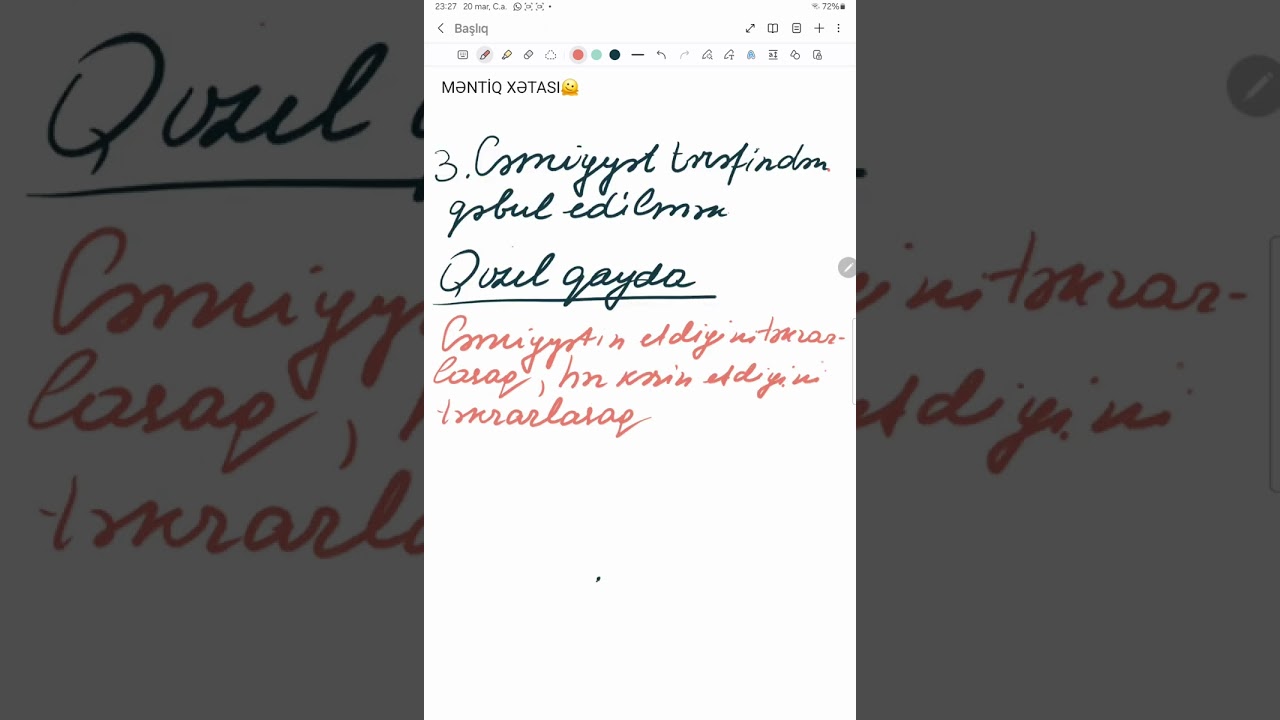 23:27 20 mar, C.a. 72%
Başlıq
MƏNTİQ XƏTASI🫠
3. Cəmiyyət tərəfindən
qəbul edilmək
Qızıl qayda
Cəmiyyətin etdiyini təkrar-
lasaq, hər kəsin etdiyini
təkrarlasaq